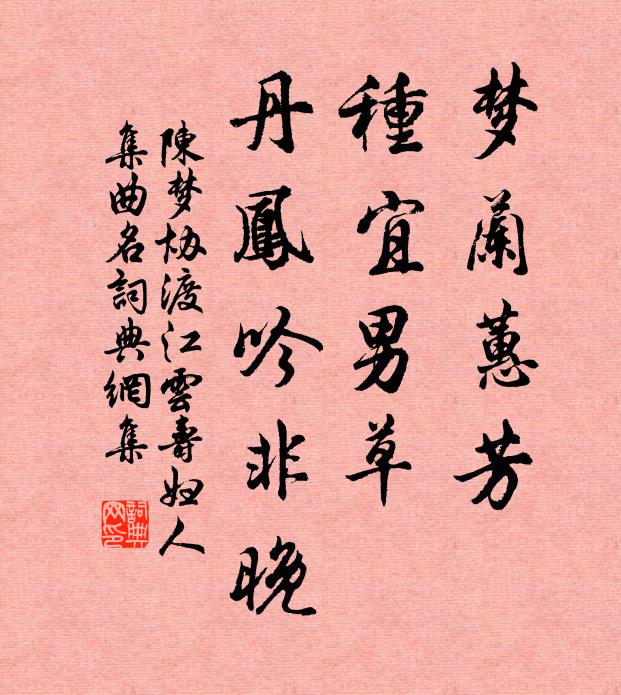 梦蘭蕙芳
種宜男草
丹鳳吟非晚
陳梦協渡江雲壽婦人
集曲名詞典網集
詞典
网印